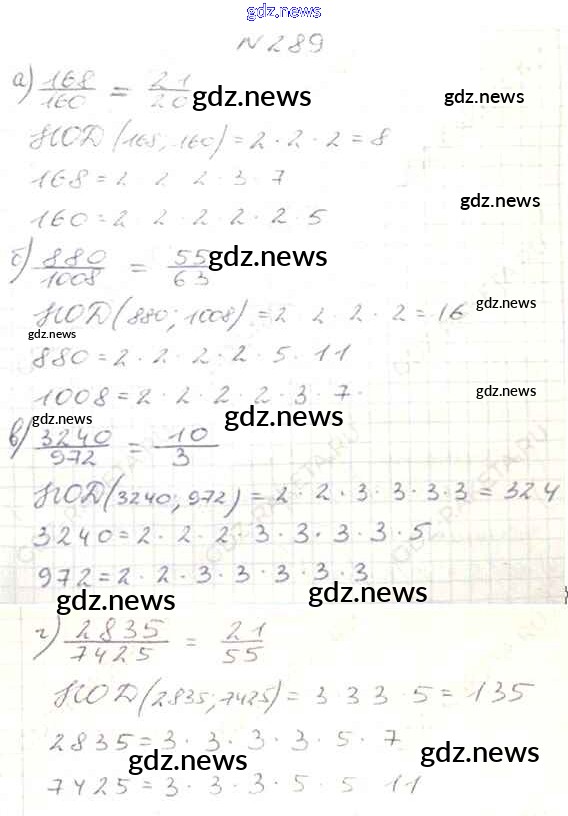 gdz.ru gdz.ru gdz.ru
N 289
а) 168/160 = 21/20 gdz.ru
gdz.ru
НОД (168; 160) = 2 · 2 · 2 = 8
168 = 2 2 2 · 3 · 7
gdz.ru
160 = 2 · 2 · 2 · 2 · 2 · 5
б) 880/1008 = 55/63 gdz.ru
НОД (880; 1008) = 2 2 2 · 2 = 16 gdz.ru
gdz.ru
880 = 2 · 2 · 2 · 2 · 5 · 11
1008 = 2 · 2 · 2 2 · 3 · 7 · gdz.ru
gdz.ru gdz.ru
в) 3240/972 = 10/3
НОД (3240; 972) = 2 · 2 · 3 · 3 · 3 · 3 = 324
3240 = 2 · 2 · 2 · 3 · 3 · 3 · 3 · 5
972 = 2 · 2 · 3 · 3 · 3 · 3 · 3
gdz.ru gdz.ru
г) 2835/7425 = 21/55
НОД (2835; 7425) = 3 3 3 · 5 = 135
2835 = 3 · 3 · 3 · 3 · 5 · 7
gdz.ru gdz.ru
7425 = 3 · 3 · 3 · 5 · 5 11